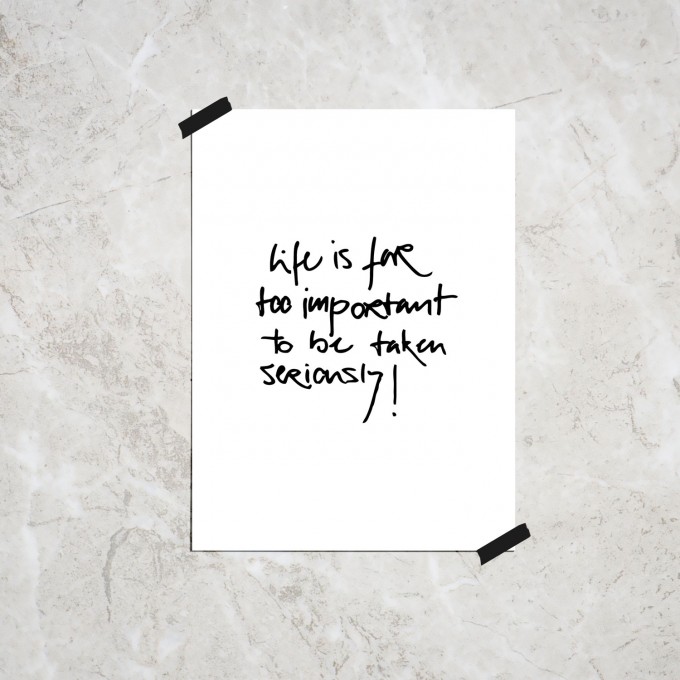 Life is far
too important
to be taken
seriously!